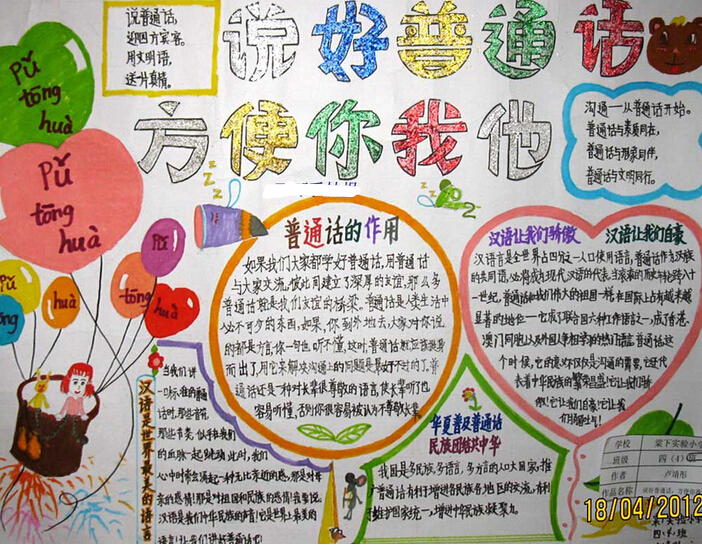 说普通话,
迎四方宾客.
用文明语,
送片真情.
说好普通话
方便你我他
Pǔ
tōng
huà
Pǔ
tōng
huà
沟通——从普通话开始。
普通话与素质同在,
普通话与形象同伴,
普通话与文明同行。
普通话的作用
如果我们大家都学好普通话,用普通话
与大家交流,彼此间建立了深厚的友谊,那么多
普通话就是我们友谊的桥梁。普通话是人类生活中
必不可少的东西,如果,你到外地去,大家对你说
的都是方言,你一句也听不懂,这时,普通话就应
而出了,用它来解决沟通上的问题是再好不过的了。普
通话还是一种对长辈很尊敬的语言,使长辈听了也
容易听懂,否则你很容易被认为不尊敬长辈。
汉语让我们骄傲 汉语让我们自豪
汉语言是全世界占四分之一人口使用语言,普通话作为汉族
的共同语,必将成为现代汉语的代表,当滚滚的历史车轮跨入廿
一世纪,普通话和我们伟大的祖国一样,在国际上占有越来越
显著的地位——它成了联合国六种工作语言之一,成了香港、
澳门同胞以及外国人争相学的热门语言,普通话这
个时候,它的意义不仅仅是沟通的需要,它还代
表着中华民族的繁荣昌盛!它让我们骄
傲!它让我们自豪!它让我
Pǔ
tōng
huà
tōng
huà
汉语是世界最美的语言
当我们讲一
口标准的普通
话时,那些音符,
那些节奏,似乎在我们
的血脉一起跳动,此时,我们
心中时常会涌起一种无比亲近的感,那是对母
亲的感情!那是对祖国和民族的感情!言要说,
汉语是我们中华民族的声音!它是世界上最美的
语言!让我们讲好普通话吧!
华夏普及普通话
民族团结兴中华
我国是多民族、多语言、多方言的人口大国,推
广普通话有利于增进民族各地区的交流,有利
于维护国家统一,增进中华民族凝聚力。
学校 棠下实验小学
班级 四(4)班
作者 卢靖彤
作品名称 说好普通话,方便你我他
18/04/2012